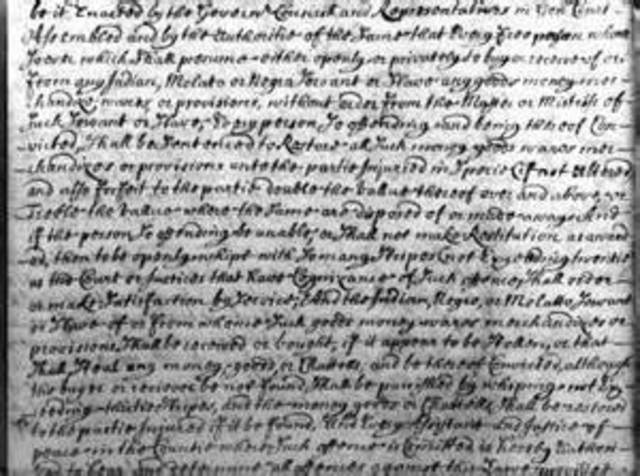 be it Enacted by the Governr Councill and Representatives in Genll Court
Assembled and by the Authoritie of the Same that Every free person whom
soever which Shall presume either openly or privately to buy or receive of or
from any Indian, Molato or Negro Servant or Slave any goods money mer
chandize, wares or provisions, without order from the Master or Mistress of
Such Servant or Slave, Every person So offending and being thereof Con
victed, Shall be Sentenced to Restore all Such money goods wares mer
chandizes or provisions unto the partie Injured in Specie (if not altered)
and also forfeit to the partie double the value thereof over and above, or
treble the value where the Same are disposed of or made away And
if the person So offending be unable, or Shall not make Restitution as award
ed, then to be openly whipt with So many Stripes (not Exceeding twentie)
as the Court or Justices that have Cognizance of Such offence Shall order
or make Satisfaction by Service, And the Indian, Negro, or Molatto Servant
or Slave of or from whome Such goods money wares merchandizes or
provisions Shall be received or bought, if it appear to be Stollen, or that
Shall Steal any money, goods, or Chattells, and be thereof Convicted, although
the buyer or receiver be not found, Shall be punished by whipping not Ex
ceeding thirtie Stripes, and the money goods or Chattells Shall be restored
to the partie Injured if it be found, And Every Assistant and Justice of
peace in the Countie where Such offence is Comitted is hereby Authori
to hear and determine all offences against this